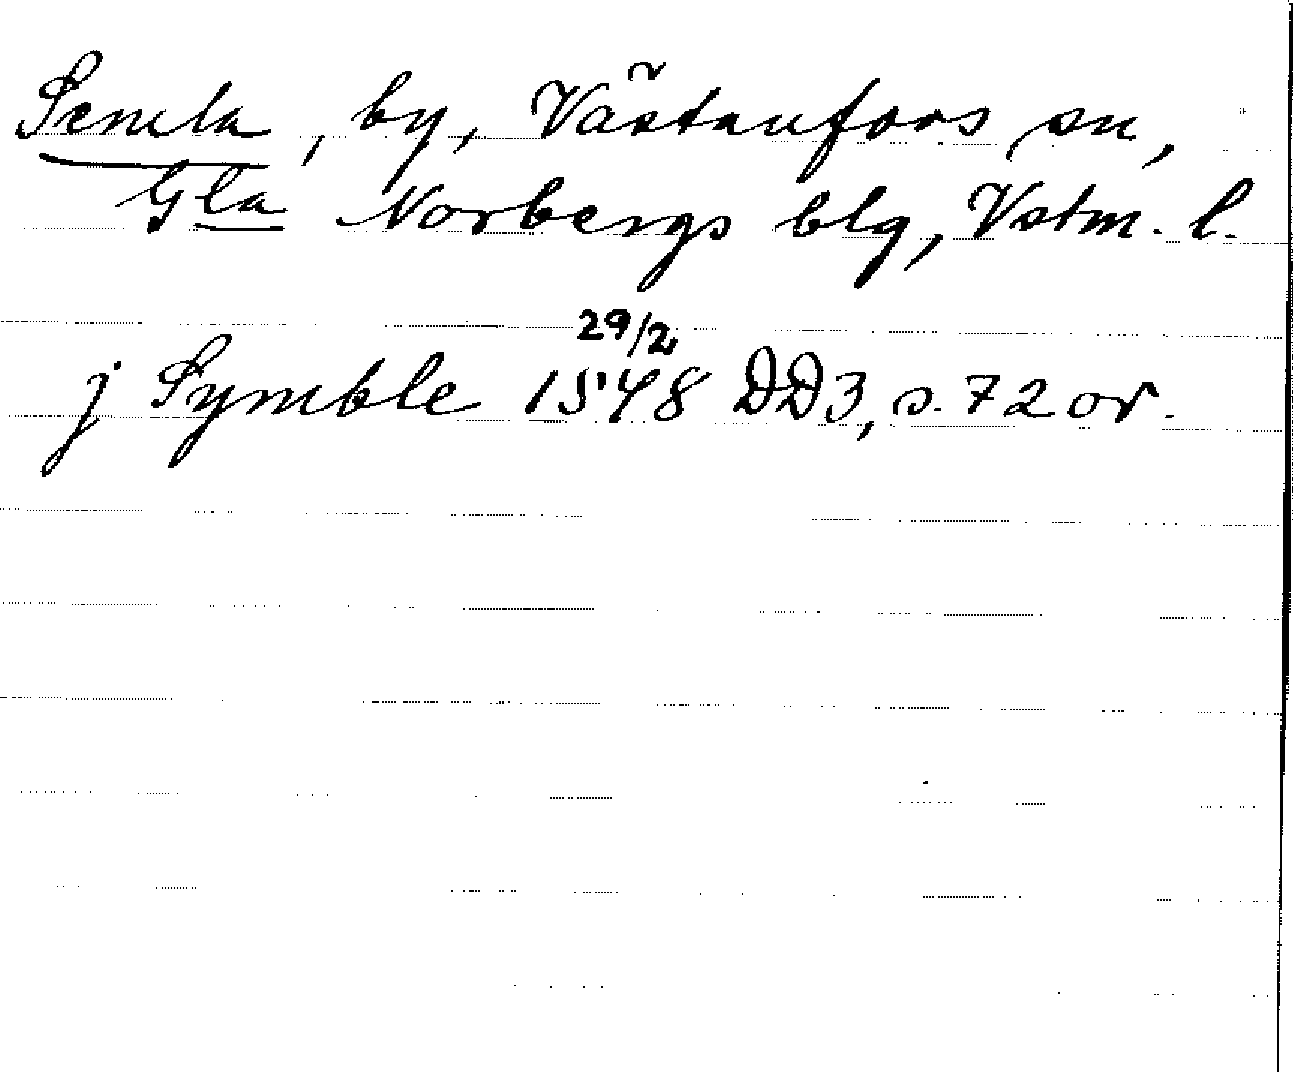 Semla, by, Västanfors sn,
Gla Norbergs blg, Vstm. l.
29/2
j Symble 1548 DD3, s. 72 or.